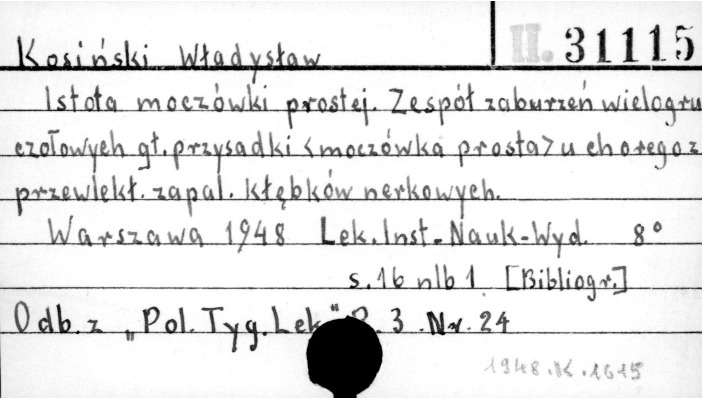 Kosiński Władysław
II. 31115
Istota moczówki prostej. Zespół zaburzeń wielogru
czołowych gł. przysadki <moczówka prosta> u chorego z
przewlekł. zapal. kłębków nerkowych.
Warszawa 1948 Lek. Inst. Nauk-Wyd. 8°
s. 16 nlb 1 [Bibliogr.]
Odb. z „Pol. Tyg. Lek." R. 3. Nr. 24
1948.K.1615